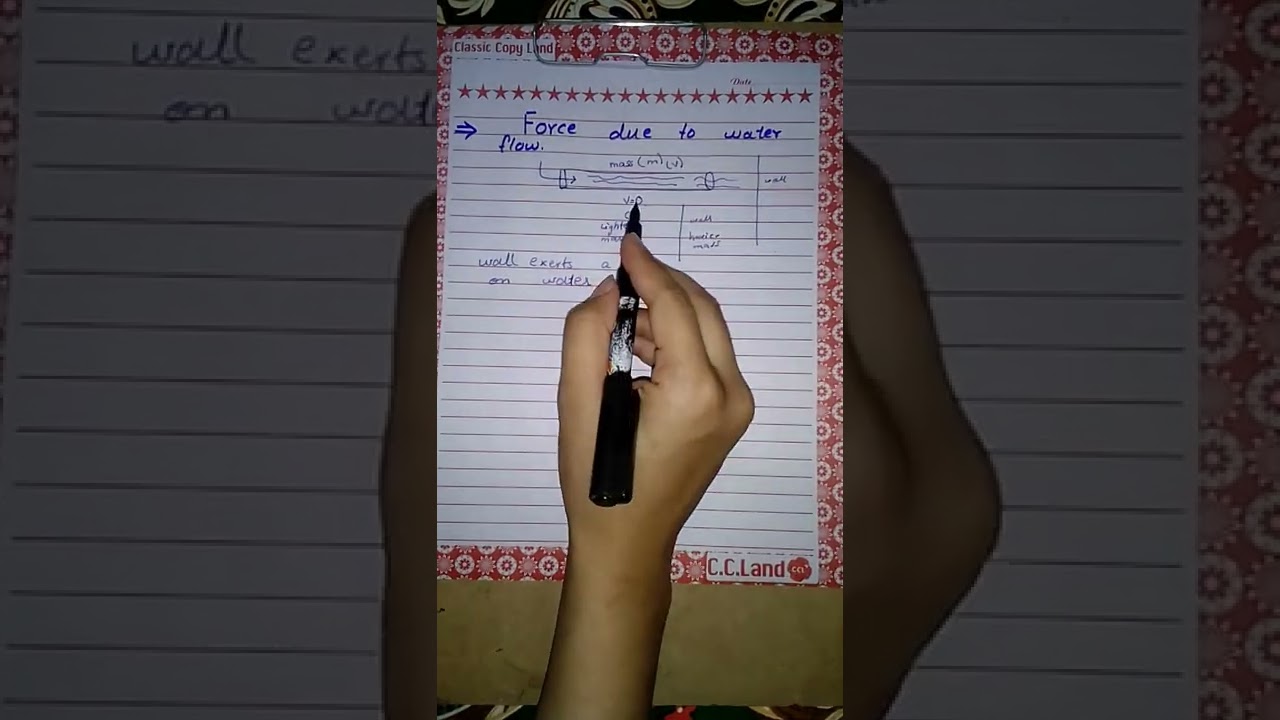 wall exerts
on
Classic Copy Land
Date
⇒ Force due to water
flow.
mass (m) (v)
wall
v=0
wall
mass
wall exerts a
on water
C.C.Land